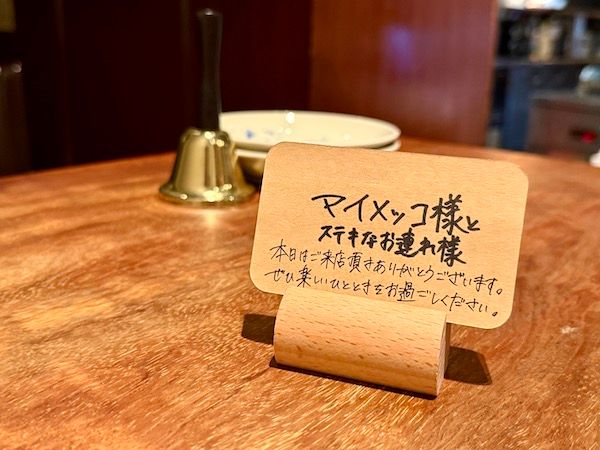 マイメッコ様と
ステキなお連れ様
本日はご来店頂きありがとうございます。
ぜひ楽しいひとときをお過ごしください。